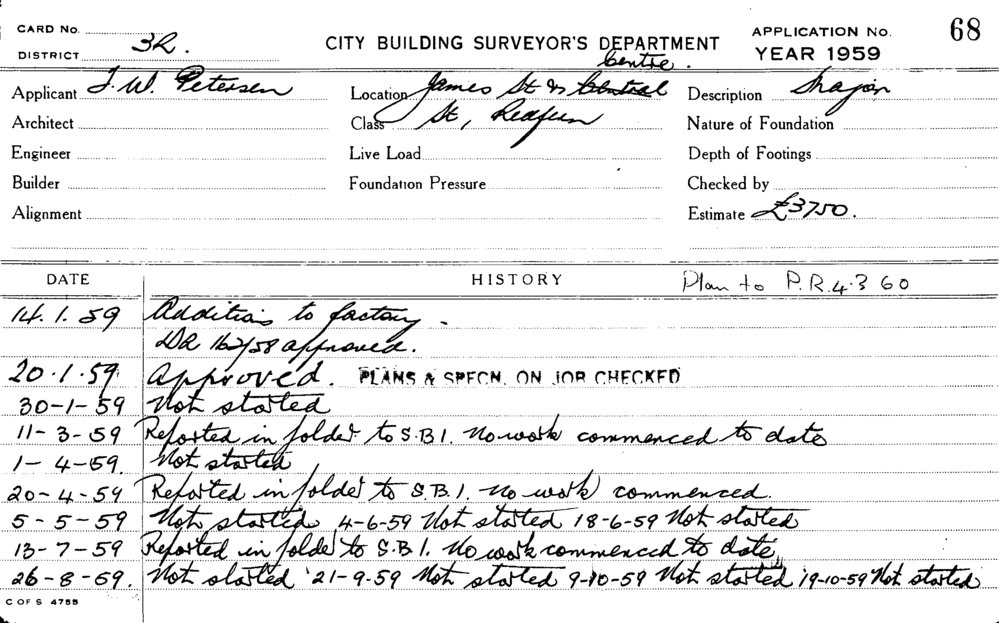 CARD No.
DISTRICT 3R.
CITY BUILDING SURVEYOR'S DEPARTMENT
APPLICATION No. 68
YEAR 1959
Applicant J. W. Petersen
Architect
Engineer
Builder
Alignment
Centre.
Location James St & Central
Class St, Redfern
Live Load
Foundation Pressure
Description
Nature of Foundation
Depth of Footings
Checked by
Estimate £3750.
DATE HISTORY Plan to P.R. 4.3 60
14.1.59 Additions to factory.
DA 162/58 approved.
20.1.59 Approved. PLANS & SPECN. ON JOB CHECKED
30-1-59 Not started
11-3-59 Reported in folder to S.B.I. No work commenced to date
1-4-59. Not started
20-4-59 Reported in folder to S.B.I. No work commenced.
5-5-59 Not started 4-6-59 Not started 18-6-59 Not started
13-7-59 Reported in folder to S.B.I. No work commenced to date
26-8-59. Not started 21-9-59 Not started 9-10-59 Not started 19-10-59 Not started
C OF S 4755